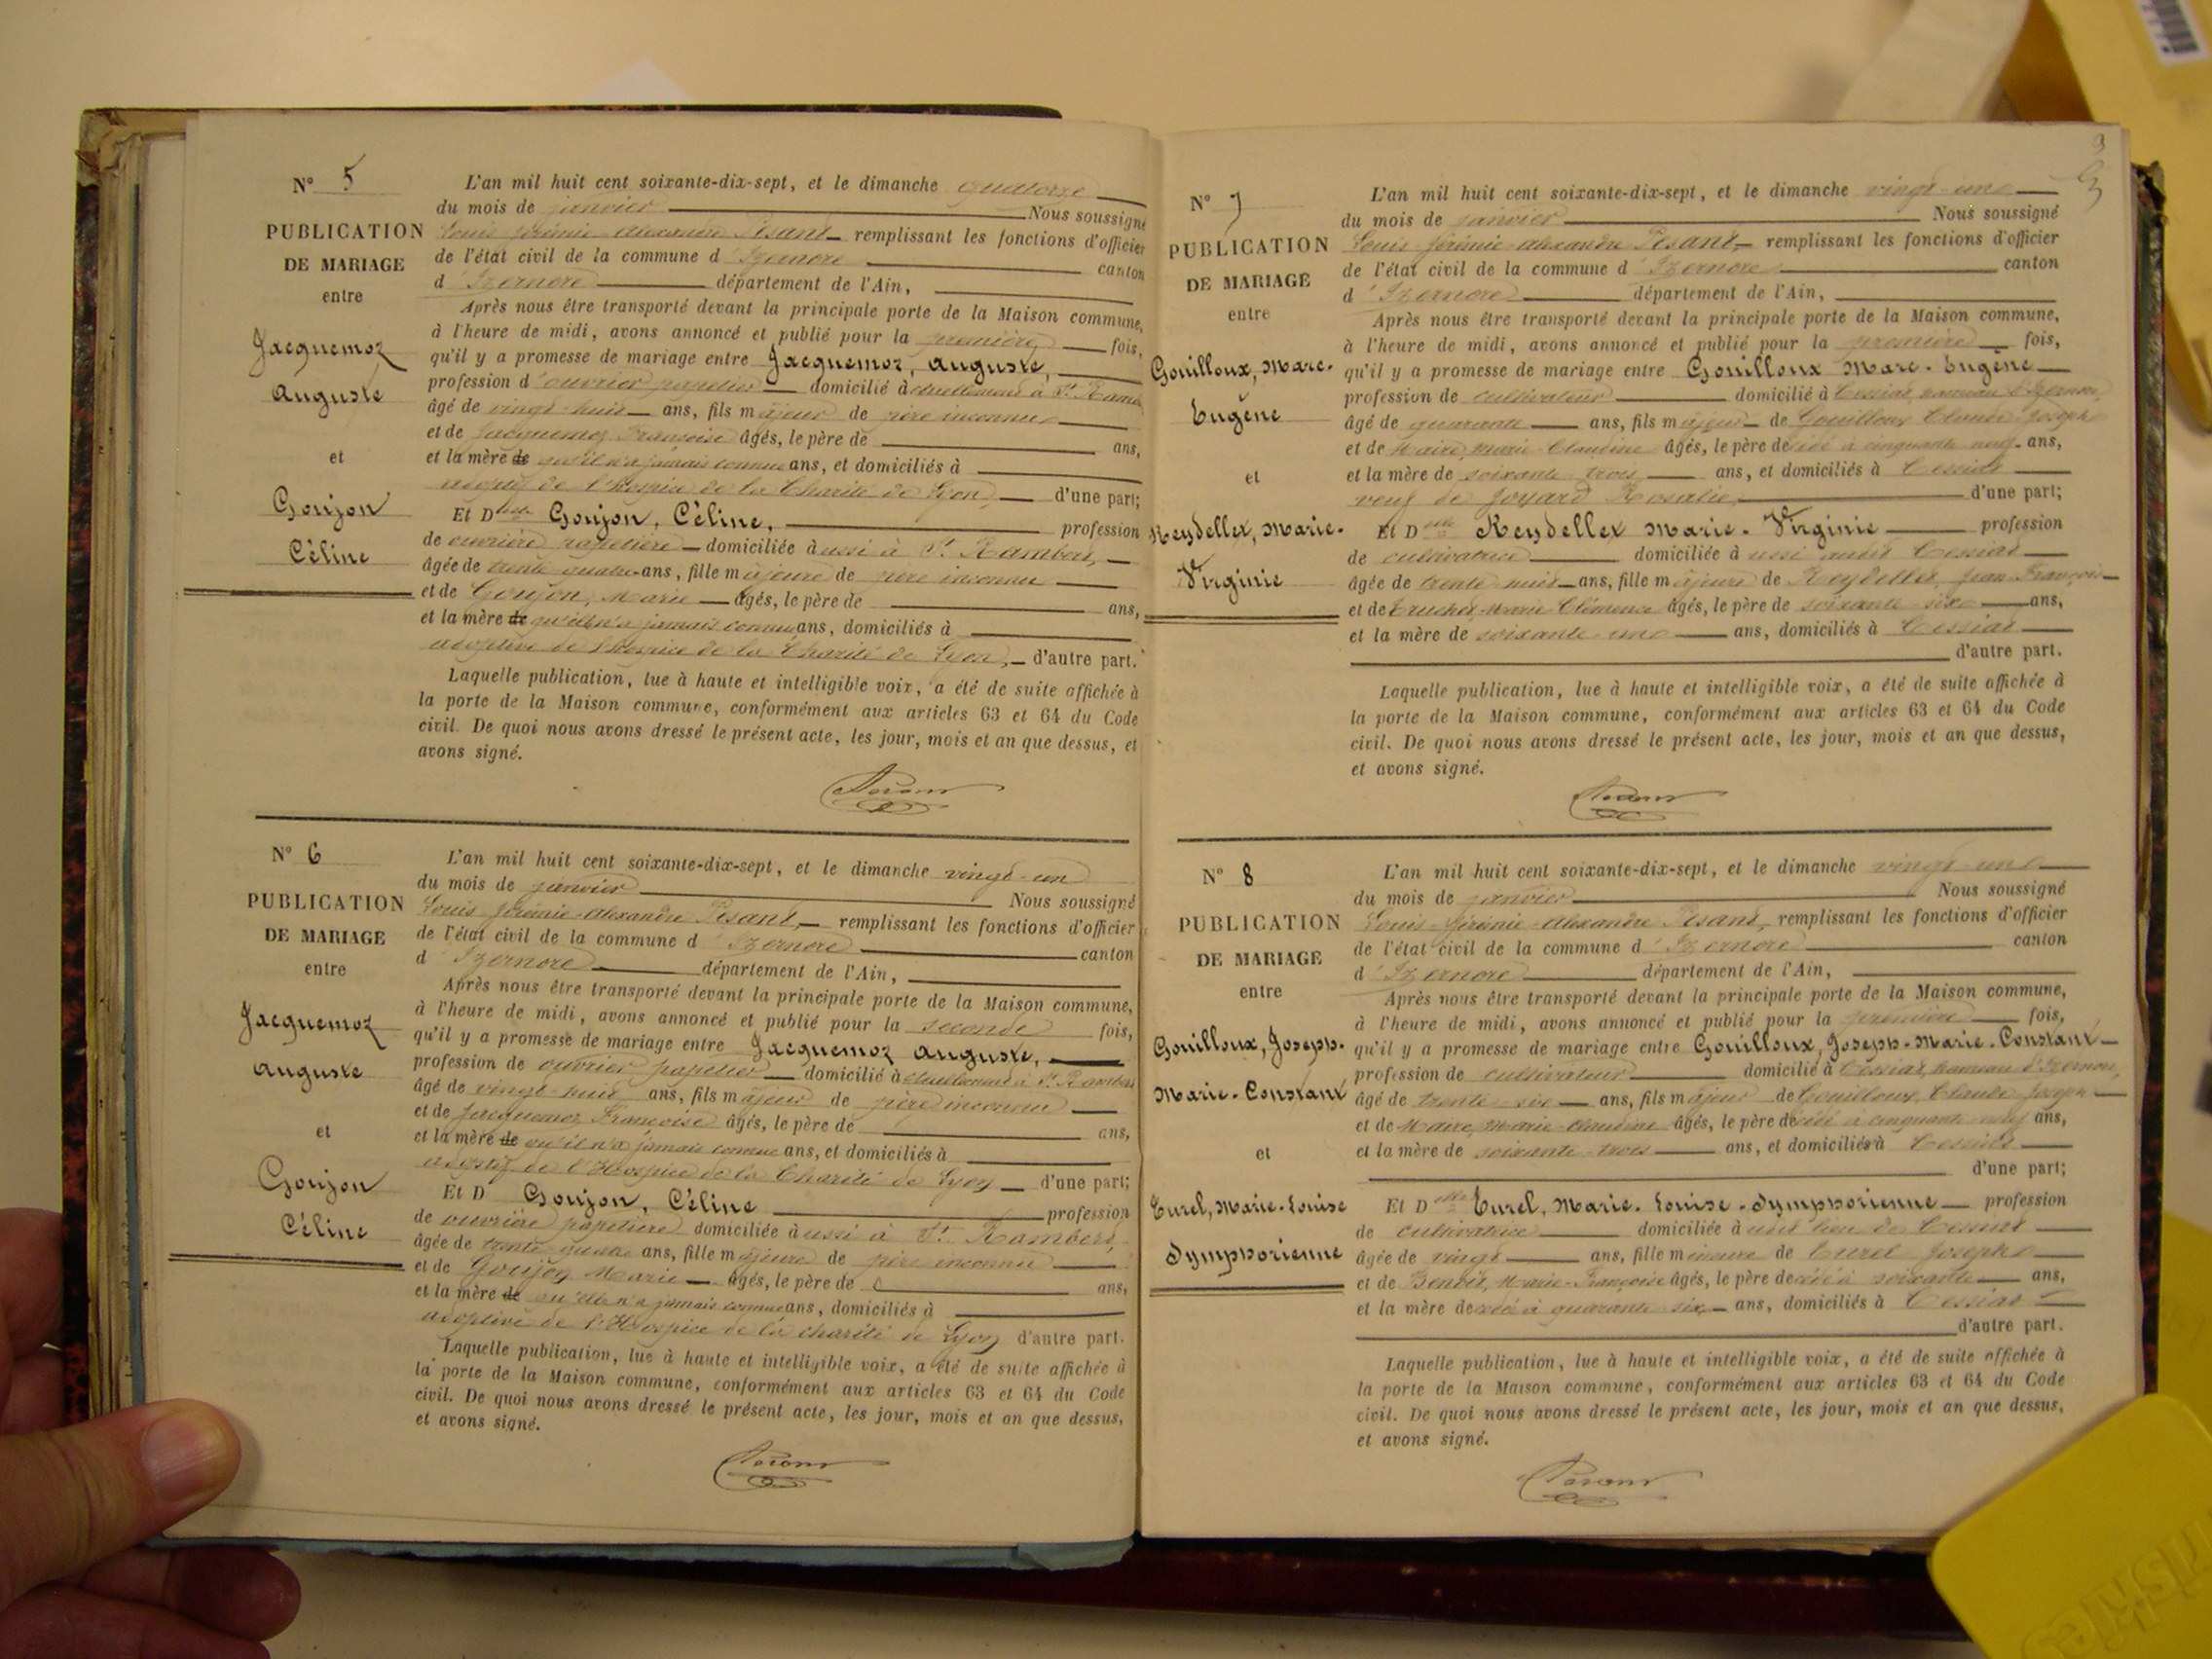 N° 5
PUBLICATION
DE MARIAGE
entre
Jacquemoz
Auguste
et
Goujon
Céline
L'an mil huit cent soixante-dix-sept, et le dimanche quatorze
du mois de janvier Nous soussigné
Louis Jérémie Alexandre Pesant remplissant les fonctions d'officier
de l'état civil de la commune d'Izernore canton
d'Izernore département de l'Ain,
Après nous être transporté devant la principale porte de la Maison commune,
à l'heure de midi, avons annoncé et publié pour la première fois,
qu'il y a promesse de mariage entre Jacquemoz, Auguste,
profession d'ouvrier papetier domicilié actuellement à St. Rambert
âgé de vingt-huit ans, fils majeur de père inconnu
et de Jacquemoz Françoise âgés, le père de ans,
et la mère de qu'il n'a jamais connue ans, et domiciliés à
adoptif de l'hospice de la Charité de Lyon, d'une part;
Et Delle Goujon, Céline, profession
de ouvrière papetière domiciliée aussi à St. Rambert,
âgée de trente quatre ans, fille majeure de père inconnu
et de Goujon, Marie âgés, le père de ans,
et la mère de qu'elle n'a jamais connue ans, domiciliés à
adoptive de l'hospice de la Charité de Lyon, d'autre part.
Laquelle publication, lue à haute et intelligible voix, a été de suite affichée à
la porte de la Maison commune, conformément aux articles 63 et 64 du Code
civil. De quoi nous avons dressé le présent acte, les jour, mois et an que dessus, et
avons signé.
N° 6
PUBLICATION
DE MARIAGE
entre
Jacquemoz
Auguste
et
Goujon
Céline
L'an mil huit cent soixante-dix-sept, et le dimanche vingt-un
du mois de janvier Nous soussigné
Louis-Jérémie-Alexandre Pesant, remplissant les fonctions d'officier
de l'état civil de la commune d'Izernore canton
d'Izernore département de l'Ain,
Après nous être transporté devant la principale porte de la Maison commune,
à l'heure de midi, avons annoncé et publié pour la seconde fois,
qu'il y a promesse de mariage entre Jacquemoz Auguste,
profession de ouvrier papetier domicilié actuellement à St. Rambert
âgé de vingt-huit ans, fils majeur de père inconnu
et de Jacquemoz Françoise âgés, le père de ans,
et la mère de qu'il n'a jamais connue ans, et domiciliés à
adoptif de l'Hospice de la Charité de Lyon d'une part;
Et D Goujon, Céline profession
de ouvrière papetière domiciliée aussi à St. Rambert,
âgée de trente quatre ans, fille majeure de père inconnu
et de Goujon Marie âgés, le père de ans,
et la mère de qu'elle n'a jamais connue ans, domiciliés à
adoptive de l'Hospice de la charité de Lyon d'autre part.
Laquelle publication, lue à haute et intelligible voix, a été de suite affichée à
la porte de la Maison commune, conformément aux articles 63 et 64 du Code
civil. De quoi nous avons dressé le présent acte, les jour, mois et an que dessus,
et avons signé.
3
N° 7
PUBLICATION
DE MARIAGE
entre
Gouilloux, Marc-
Eugène
et
Reydellet, Marie-
Virginie
L'an mil huit cent soixante-dix-sept, et le dimanche vingt-un
du mois de janvier Nous soussigné
Louis-Jérémie-Alexandre Pesant, remplissant les fonctions d'officier
de l'état civil de la commune d'Izernore canton
d'Izernore département de l'Ain,
Après nous être transporté devant la principale porte de la Maison commune,
à l'heure de midi, avons annoncé et publié pour la première fois,
qu'il y a promesse de mariage entre Gouilloux Marc-Eugène
profession de cultivateur domicilié à Cessiat, hameau d'Izernore,
âgé de quarante ans, fils majeur de Gouilloux Claude Joseph
et de Maire, Marie-Claudine âgés, le père décédé à cinquante neuf ans,
et la mère de soixante-trois ans, et domiciliés à Cessiat
veuf de Joyard Rosalie d'une part;
Et Delle Reydellet Marie-Virginie profession
de cultivatrice domiciliée aussi audit Cessiat
âgée de trente huit ans, fille majeure de Reydellet, Jean-François
et de Truchet, Marie Clémence âgés, le père de soixante-six ans,
et la mère de soixante-un ans, domiciliés à Cessiat
d'autre part.
Laquelle publication, lue à haute et intelligible voix, a été de suite affichée à
la porte de la Maison commune, conformément aux articles 63 et 64 du Code
civil. De quoi nous avons dressé le présent acte, les jour, mois et an que dessus,
et avons signé.
N° 8
PUBLICATION
DE MARIAGE
entre
Gouilloux, Joseph-
Marie-Constant
et
Turel, Marie-Louise
Symphorienne
L'an mil huit cent soixante-dix-sept, et le dimanche vingt-un
du mois de janvier Nous soussigné
Louis-Jérémie-Alexandre Pesant, remplissant les fonctions d'officier
de l'état civil de la commune d'Izernore canton
d'Izernore département de l'Ain,
Après nous être transporté devant la principale porte de la Maison commune,
à l'heure de midi, avons annoncé et publié pour la première fois,
qu'il y a promesse de mariage entre Gouilloux, Joseph-Marie-Constant
profession de cultivateur domicilié à Cessiat, hameau d'Izernore,
âgé de trente-six ans, fils majeur de Gouilloux, Claude Joseph
et de Maire, Marie-Claudine âgés, le père décédé à cinquante neuf ans,
et la mère de soixante-trois ans, et domiciliés à Cessiat
d'une part;
Et Delle Turel, Marie-Louise-Symphorienne profession
de cultivatrice domiciliée audit lieu de Cessiat
âgée de vingt ans, fille mineure de Turel Joseph
et de Benoît, Marie-Françoise âgés, le père décédé à soixante ans,
et la mère décédée à quarante-six ans, domiciliés à Cessiat
d'autre part.
Laquelle publication, lue à haute et intelligible voix, a été de suite affichée à
la porte de la Maison commune, conformément aux articles 63 et 64 du Code
civil. De quoi nous avons dressé le présent acte, les jour, mois et an que dessus,
et avons signé.